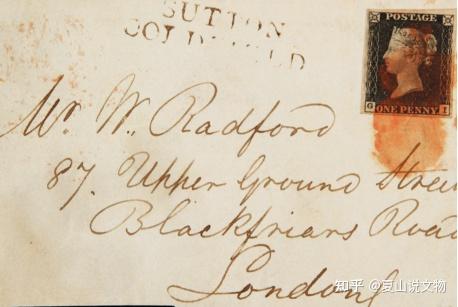 SUTTON
COLDFIELD
POSTAGE
G I
ONE PENNY
Mr. W. Radford
87. Upper Ground Stree
Blackfriars Road
London
知乎 @夏山说文物